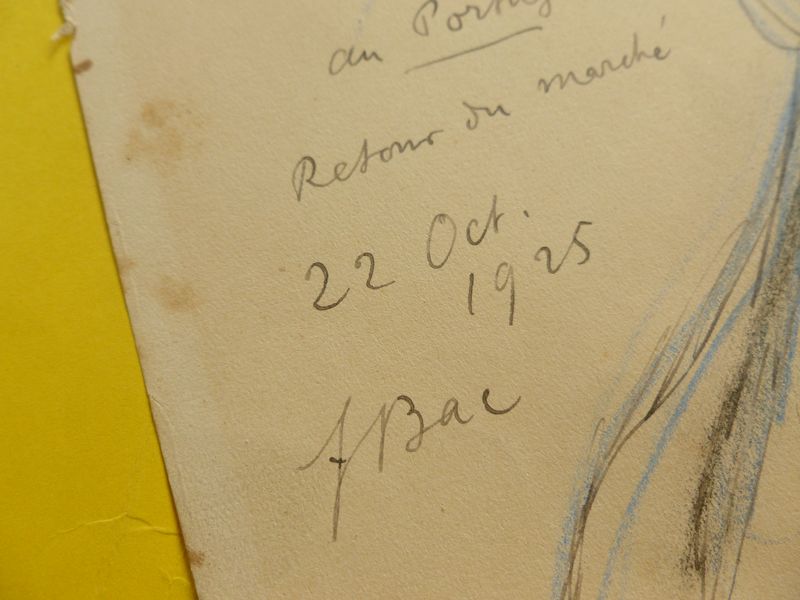 au
Retour du marché
22 Oct.
1925
f Bac